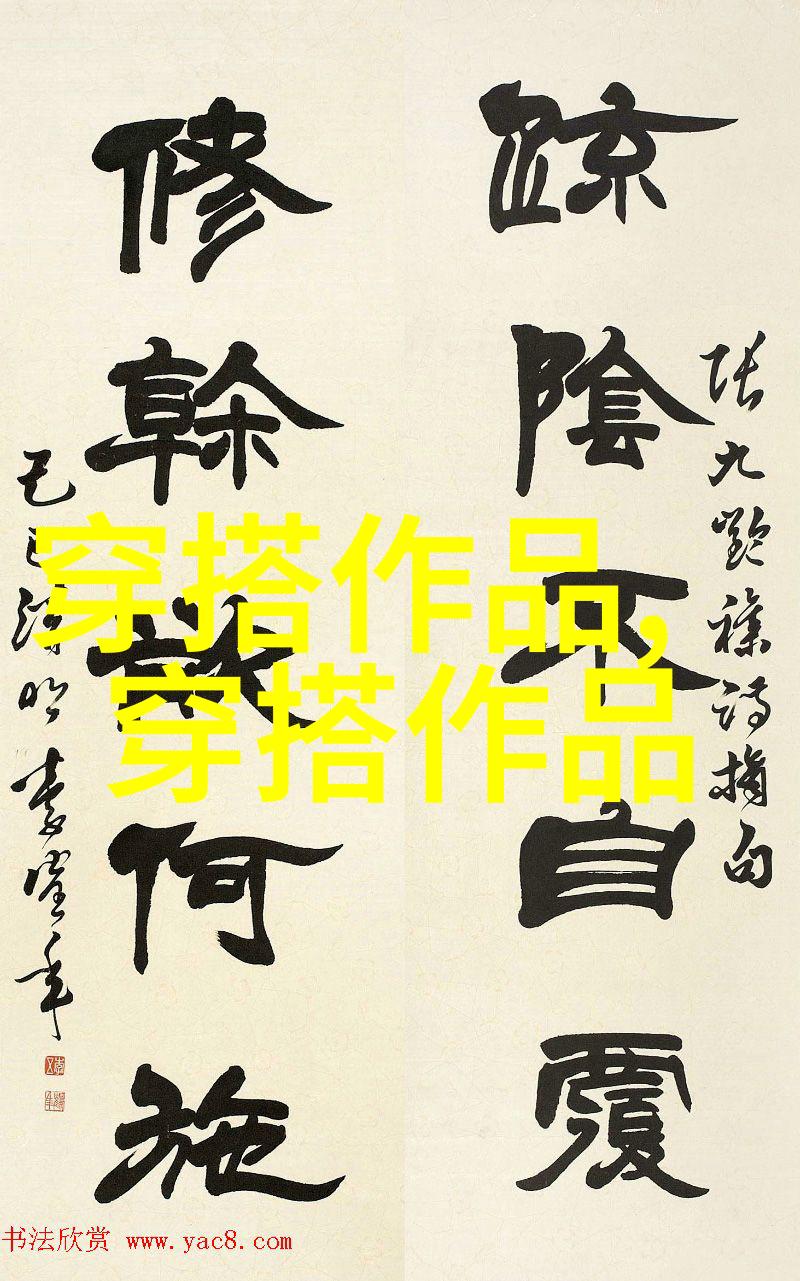 張九齡雜詩摘句
疎陰不自覆
修榦欲何施
己巳清明
穿搭作品,
穿搭作品
书法欣赏 www.yac8.com